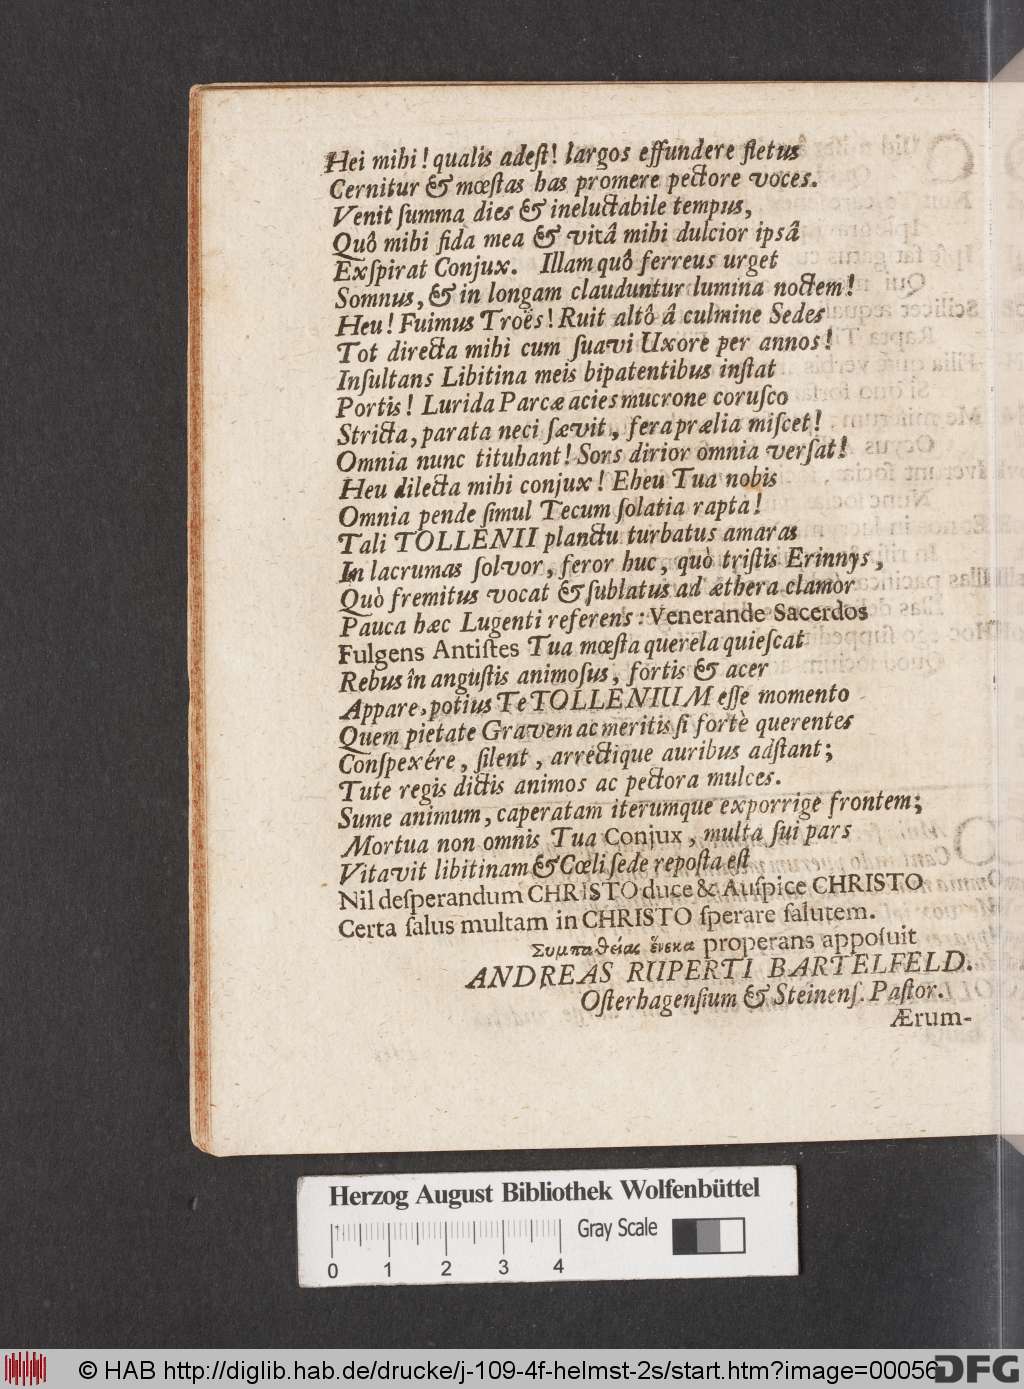 Hei mihi! qualis adeſt! largos effundere fletus
Cernitur & mœſtas has promere pectore voces.
Venit ſumma dies & ineluctabile tempus,
Quô mihi fida mea & vitâ mihi dulcior ipsâ
Exſpirat Conjux. Illam quô ferreus urget
Somnus, & in longam clauduntur lumina noctem!
Heu! Fuimus Troës! Ruit altô â culmine Sedes
Tot directa mihi cum ſuavi Uxore per annos!
Inſultans Libitina meis bipatentibus inſtat
Portis! Lurida Parcæ acies mucrone coruſco
Stricta, parata neci ſævit, fera prælia miſcet!
Omnia nunc titubant! Sors dirior omnia verſat!
Heu dilecta mihi conjux! Eheu Tua nobis
Omnia pende ſimul Tecum ſolatia rapta!
Tali TOLLENII planctu turbatus amaras
In lacrumas ſolvor, feror huc, quò triſtis Erinnys,
Quò fremitus vocat & ſublatus ad æthera clamor
Pauca hæc Lugenti referens: Venerande Sacerdos
Fulgens Antiſtes Tua mœſta querela quieſcat
Rebus în anguſtis animoſus, fortis & acer
Appare, potius Te TOLLENIUM eſſe momento
Quem pietate Gravem ac meritis ſi fortè querentes
Conſpexére, ſilent, arrectique auribus adſtant;
Tute regis dictis animos ac pectora mulces.
Sume animum, caperatam iterumque exporrige frontem;
Mortua non omnis Tua Conjux, multa ſui pars
Vitavit libitinam & Cœli ſede repoſta eſt
Nil deſperandum CHRISTO duce & Auſpice CHRISTO
Certa ſalus multam in CHRISTO ſperare ſalutem.
Συμπαθείας ἕνεκα properans appoſuit
ANDREAS RUPERTI BARTELFELD.
Oſterhagenſium & Steinenſ. Paſtor.
Ærum-
Herzog August Bibliothek Wolfenbüttel
Gray Scale
0 1 2 3 4
© HAB http://diglib.hab.de/drucke/j-109-4f-helmst-2s/start.htm?image=00056
DFG